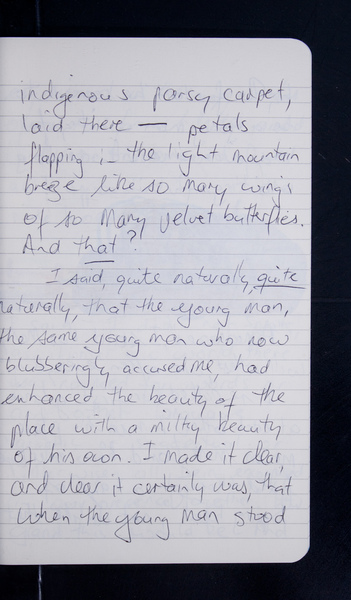 indigenous pansy carpet,
laid there — petals
flapping in the light mountain
breeze like so many wings
of so many velvet butterflies.
And that?
I said, quite naturally, quite
naturally, that the young man,
the same young man who now
blubberingly accused me, had
enhanced the beauty of the
place with a milky beauty
of his own. I made it clear,
and clear it certainly was, that
when the young man stood